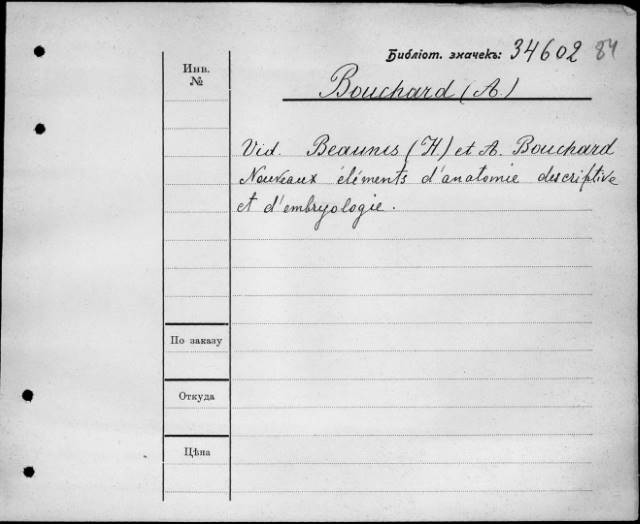 Библіот. значекъ: 34602 84
Инв.
№
Bouchard (A.)
Vid. Beaunis (H) et A. Bouchard
Nouveaux éléments d'anatomie descriptive
et d'embryologie.
По заказу
Откуда
Цѣна